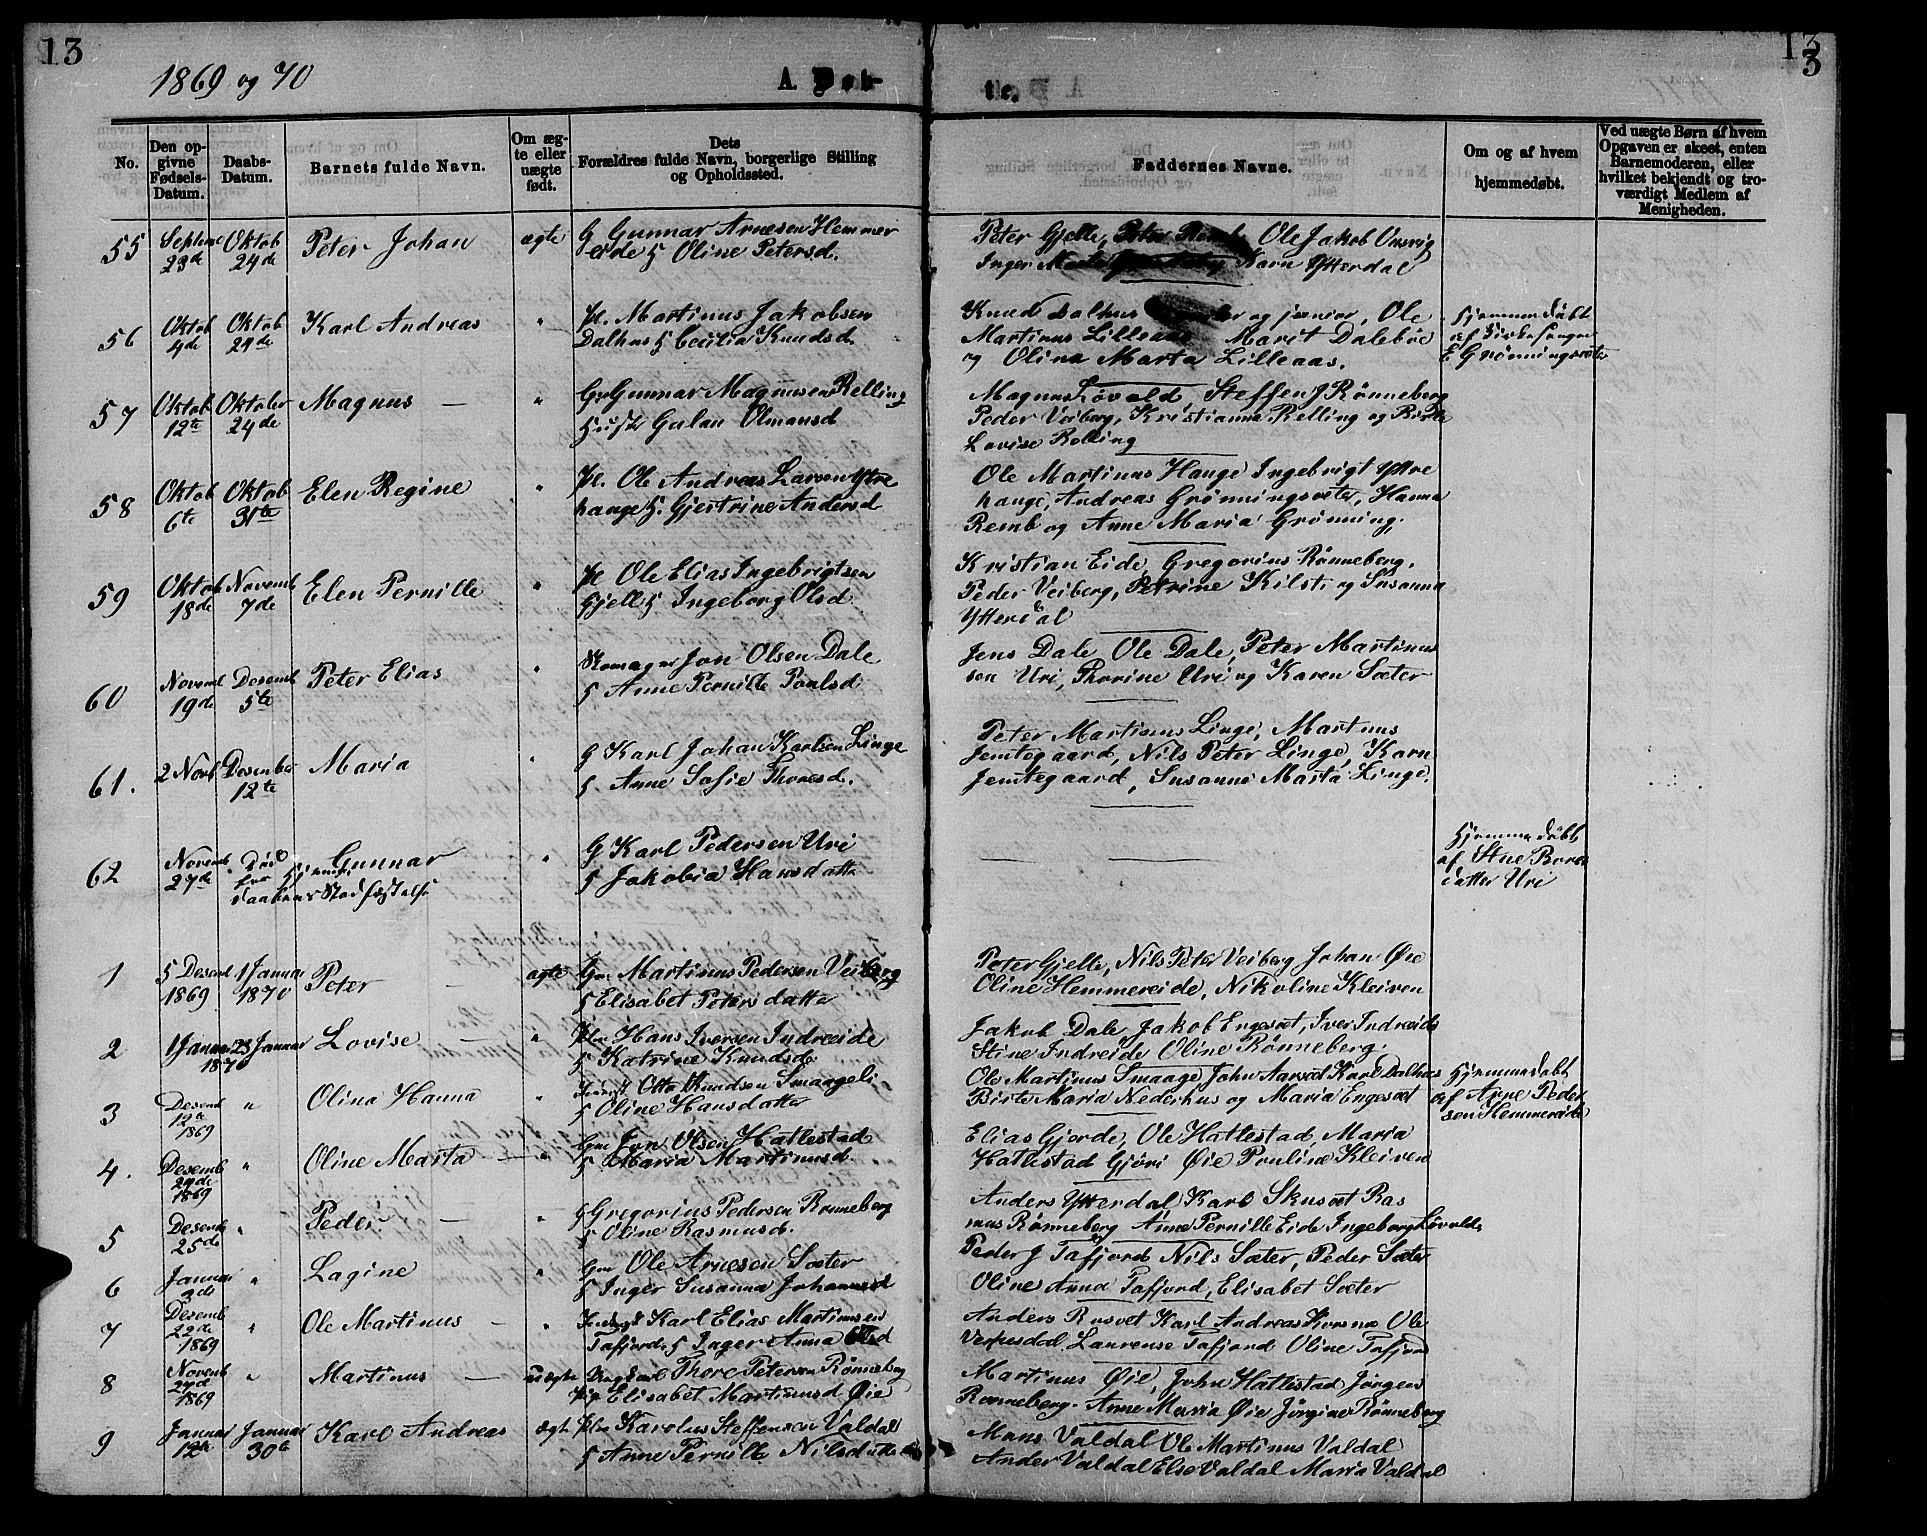 13
13
3
1869 og 70
A. Døb-
te.
No.
Den op-
givne
Fødsels-
Datum.
Daabs-
Datum.
Barnets fulde Navn.
Om æg-
te eller
uægte
født.
Dets
Forældres fulde Navn, borgerlige Stilling
og Opholdssted.
Faddernes Navne.
Om og af hvem
hjemmedøbt.
Ved uægte Børn af hvem
Opgaven er skeet, enten
Barnemoderen, eller
hvilket bekjendt og tro-
værdigt Medlem af
Menigheden.
55
Septme
23de
Oktob
24de
Peter Johan
ægte
G Gunnar Arnesen Hemmer
eide H Oline Petersd.
Peter Gjelle, Ole Jakob Omsvig
Inger Karn Ytterdal
56
Oktob
4de
Oktob
24de
Karl Andreas
"
Pl. Martinus Jakobsen
Dalhus H Cecilia Knudsd
Knud Dalhus og junior, Ole
Martinus Lilleaas Marit Dalebøe
og Olina Marta Lilleaas.
Hjemmedøbt
af Kirkesanger
E Grønningsæter
57
Oktob
12te
Oktober
24de
Magnus —
"
Gr Gunnar Magnusen Relling
Hust Gulau Olmansd
Magnus Løvold Steffen J Rønneberg
Peder Veiberg, Kristianna Relling og Birte
Lovise Relling
58
Oktob
6te
Oktob
31te
Elen Regine
"
Pl. Ole Andreas Larsen Ytre
hauge H. Gjertrine Andersd
Ole Martinus Hauge Ingebrigt Yttre
hauge, Andreas Grønningsæter, Hanna
Remb og Anne Maria Grønning,
59
Oktob
18de
Novemb
7de
Elen Pernille
"
Pl Ole Elias Ingebrigtsen
Gjelle H Ingeborg Olsd
Kristian Eide, Gregorius Rønneberg,
Peder Veiberg, Petrine Kilsti og Susanna
Ytterdal
60
Novemb
19de
Desemb
5te
Peter Elias
"
Skomager Jon Olsen Dale
H Anne Pernille Poulsd
Jens Dale Ole Dale, Peter Martinus
sen Uri, Thorine Uri og Karen Sæter
61.
2 Novb
Desember
12te
Maria
"
G Karl Johan Karlsen Linge
H Anne Sofie Thoresd.
Peter Martinus Linge, Martnus
Jemtegaard, Nils Peter Linge, Karn
Jemtegaard, Susanne Marta Linge.
62
Novemb
27de
Død
før Hjemme
daabens Stadfæstelse
Gunnar
"
G Karl Pedersen Uri
H Jakobia Hansdatte
Hjemmedøbt
af Stne
datter Uri
1
5 Desemb
1869
1 Januar
1870
Peter —
ægte
Gm Martinus Pedersen Veiberg
H Elisabet Petersdatte
Peter Gjelle, Nils Peter Veiberg Johan Øie
Oline Hemmereide, Nikoline Kleiven
2
1 Januar
1870
23 Januar
Lovise —
"
Plm Hans Iversen Indreeide
H Katrine Knudsd.
Jakob Dale, Jakob Engeset, Iver Indreeide
Stine Indreide Oline Rønneberg.
3
Desemb
12te
1869
"
Olina Hanna
"
Otto Knudsen Smaageli
H Oline Hansdatte
Ole Martinus Smaage, John Aarset Karl Dalhus
Birte Maria Nederhus og Maria Engeset
Hjemmedøbt
af Anne Peder
sen Hemmereide
4.
Desemb
29de
1869
"
Oline Marta —
"
Gm Jon Olsen Hattestad
H Maria Martinusd.
Elias Gjerde, Ole Hattestad, Maria
Hattestad Gjøri Øie Pouline Kleiven
5
Desemb
25de
"
Peder —
"
G Gregorius Pedersen Rønneberg
H Oline Rasmusd.
Anders Ytterdal Karl Skuset Ras
mus Rønneberg Anne Pernille Eide Ingeborg Løvold.
6
Januar
3de
"
Lagine
"
Gm Ole Arnesen Sæter
H Inger Susanna Johannesd
Peder J Tafjord Nils Sæter, Peder Sæter
Oline Anna Tafjord, Elisabet Sæter
7
Desemb
22de
1869
"
Ole Martinus —
"
Karl Elias Martinusen
Tafjord, H Inger Anna Olsd
Anders Karl Andreas Ole
Laurense Tafjord Oline Tafjord
8
Novemb
27de
1869
"
Martinus —
uægte
Ungkarl Thore Petersen Rønneberg
Pig Elisabet Martinusd Øie
Martinus Øie, John Hattestad Jørgen
Rønneberg. Anne Maria Øie Jørgine Rønneberg
9
Januar
12te
Januar
30te
Karl Andreas
ægt
Plm Karolus Steffensen Valdal
H Anne Pernille Nilsdatte
Mons Valdal Ole Martinus Valdal
Ander Valdal Else Valdal Maria Valdal